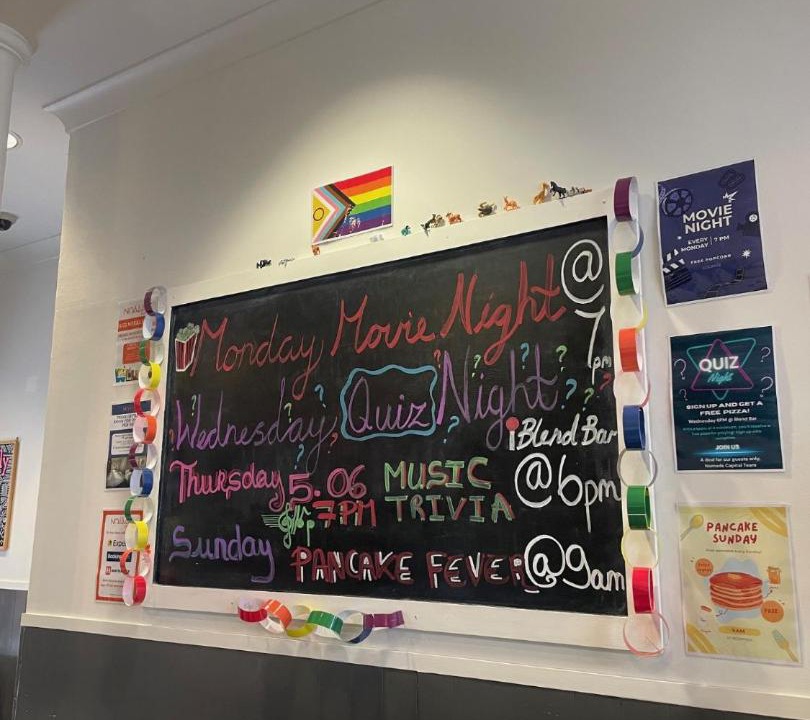 Monday Movie Night @ 7pm
Wednesday Quiz Night
Blend Bar
@6pm
Thursday 5.06 MUSIC
7PM TRIVIA
Sunday PANCAKE FEVER @9am
MOVIE
NIGHT
EVERY
MONDAY | 7 PM
FREE POPCORN
QUIZ
Night
SIGN UP AND GET A
FREE PIZZA!
Wednesday 6PM @ Blend Bar
JOIN US
A deal for our guests only,
Nomads Capital Team
PANCAKE
SUNDAY
FREE
9 AM